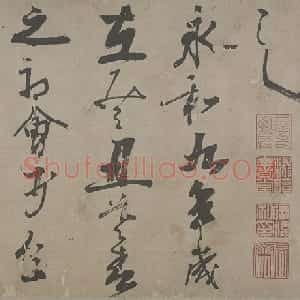 永和九年歲
在癸丑暮春
之初會于會
Shufaziliao.com